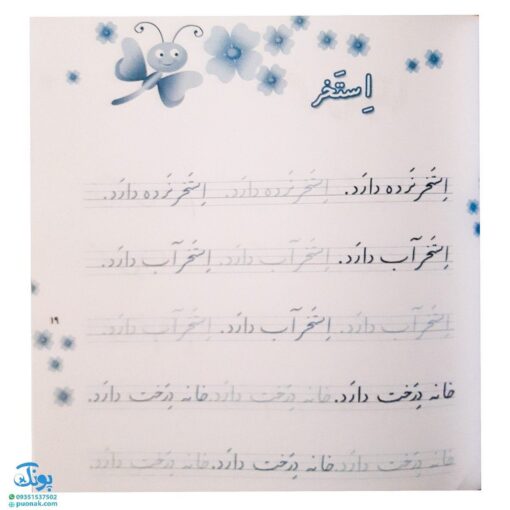 اِستَخر
اِستَخر نَرده دارَد. اِستَخر نَرده دارَد. اِستَخر نَرده دارَد.
اِستَخر آب دارَد. اِستَخر آب دارَد. اِستَخر آب دارَد.
اِستَخر آب دارَد. اِستَخر آب دارَد. اِستَخر آب دارَد.
۱۹
خانه دِرَخت دارَد. خانه دِرَخت دارَد. خانه دِرَخت دارَد.
خانه دِرَخت دارَد. خانه دِرَخت دارَد. خانه دِرَخت دارَد.
پونک
09351537502
puonak.com